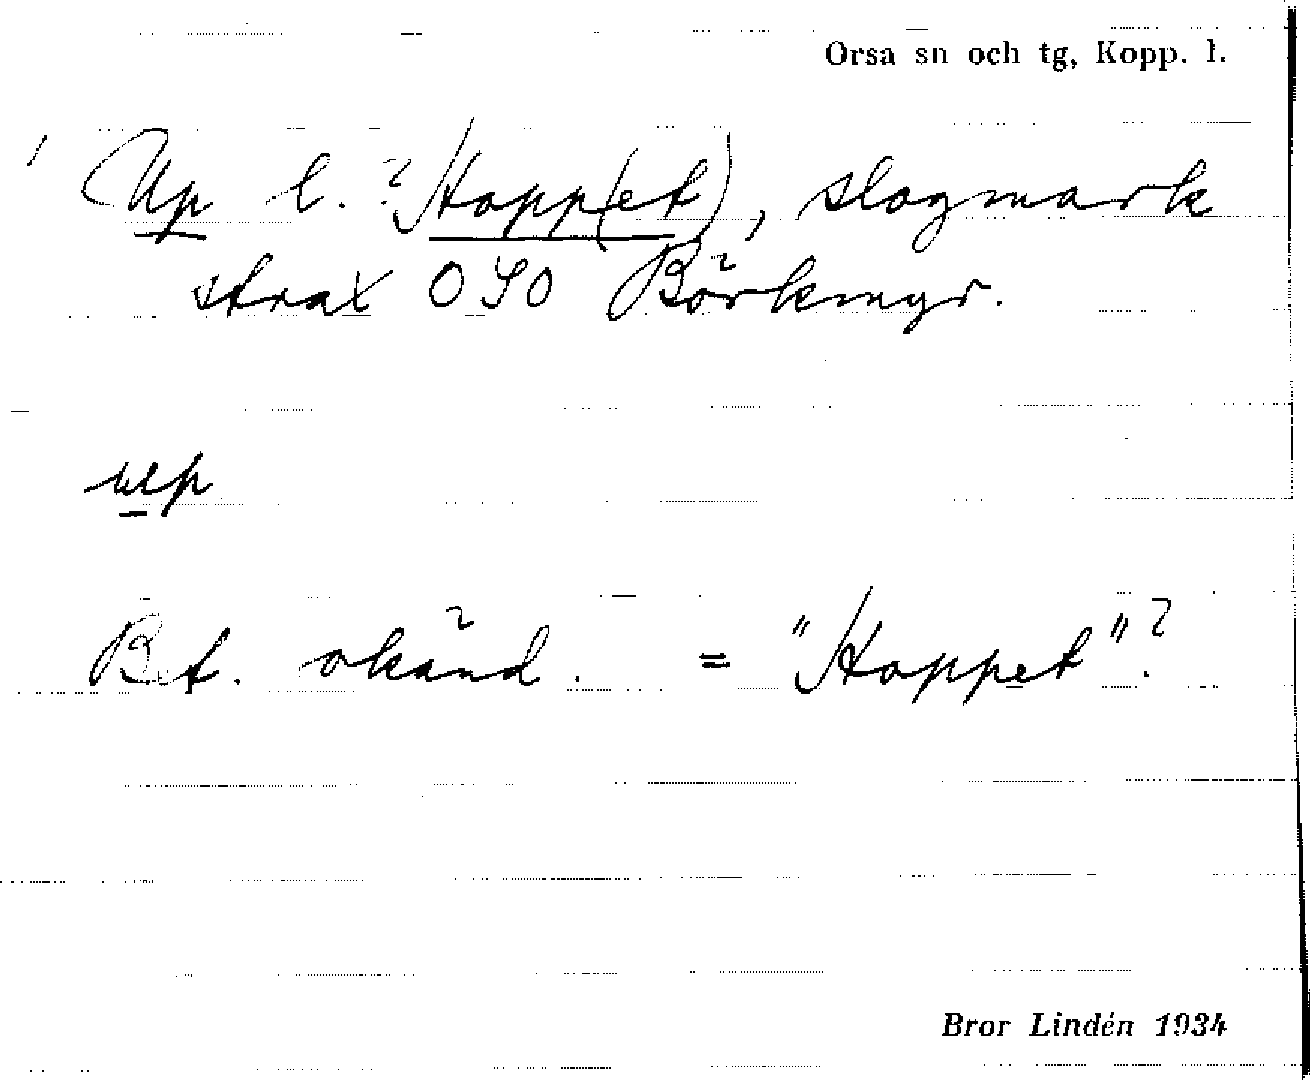 Orsa sn och tg, Kopp. l.
Up l. ? Hopp(et), slogmark
strax OSO Börkmyr.
up
Bet. okänd. = "Hoppet"?
Bror Lindén 1934